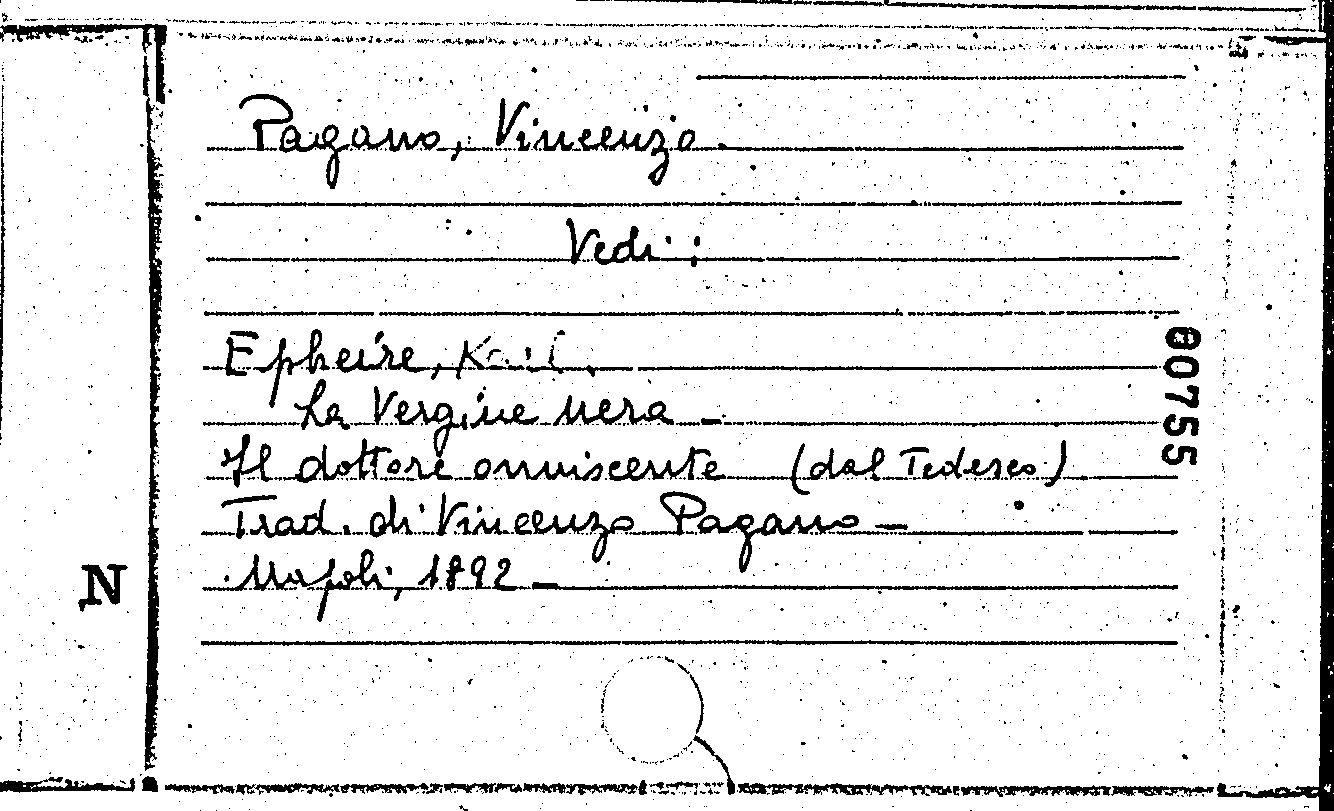 Pagano, Vincenzo.
Vedi:
Epheire, Karl.
La Vergine nera –
Il dottore onniscente (dal Tedesco)
Trad. di Vincenzo Pagano –
Napoli, 1892 –
00755
N